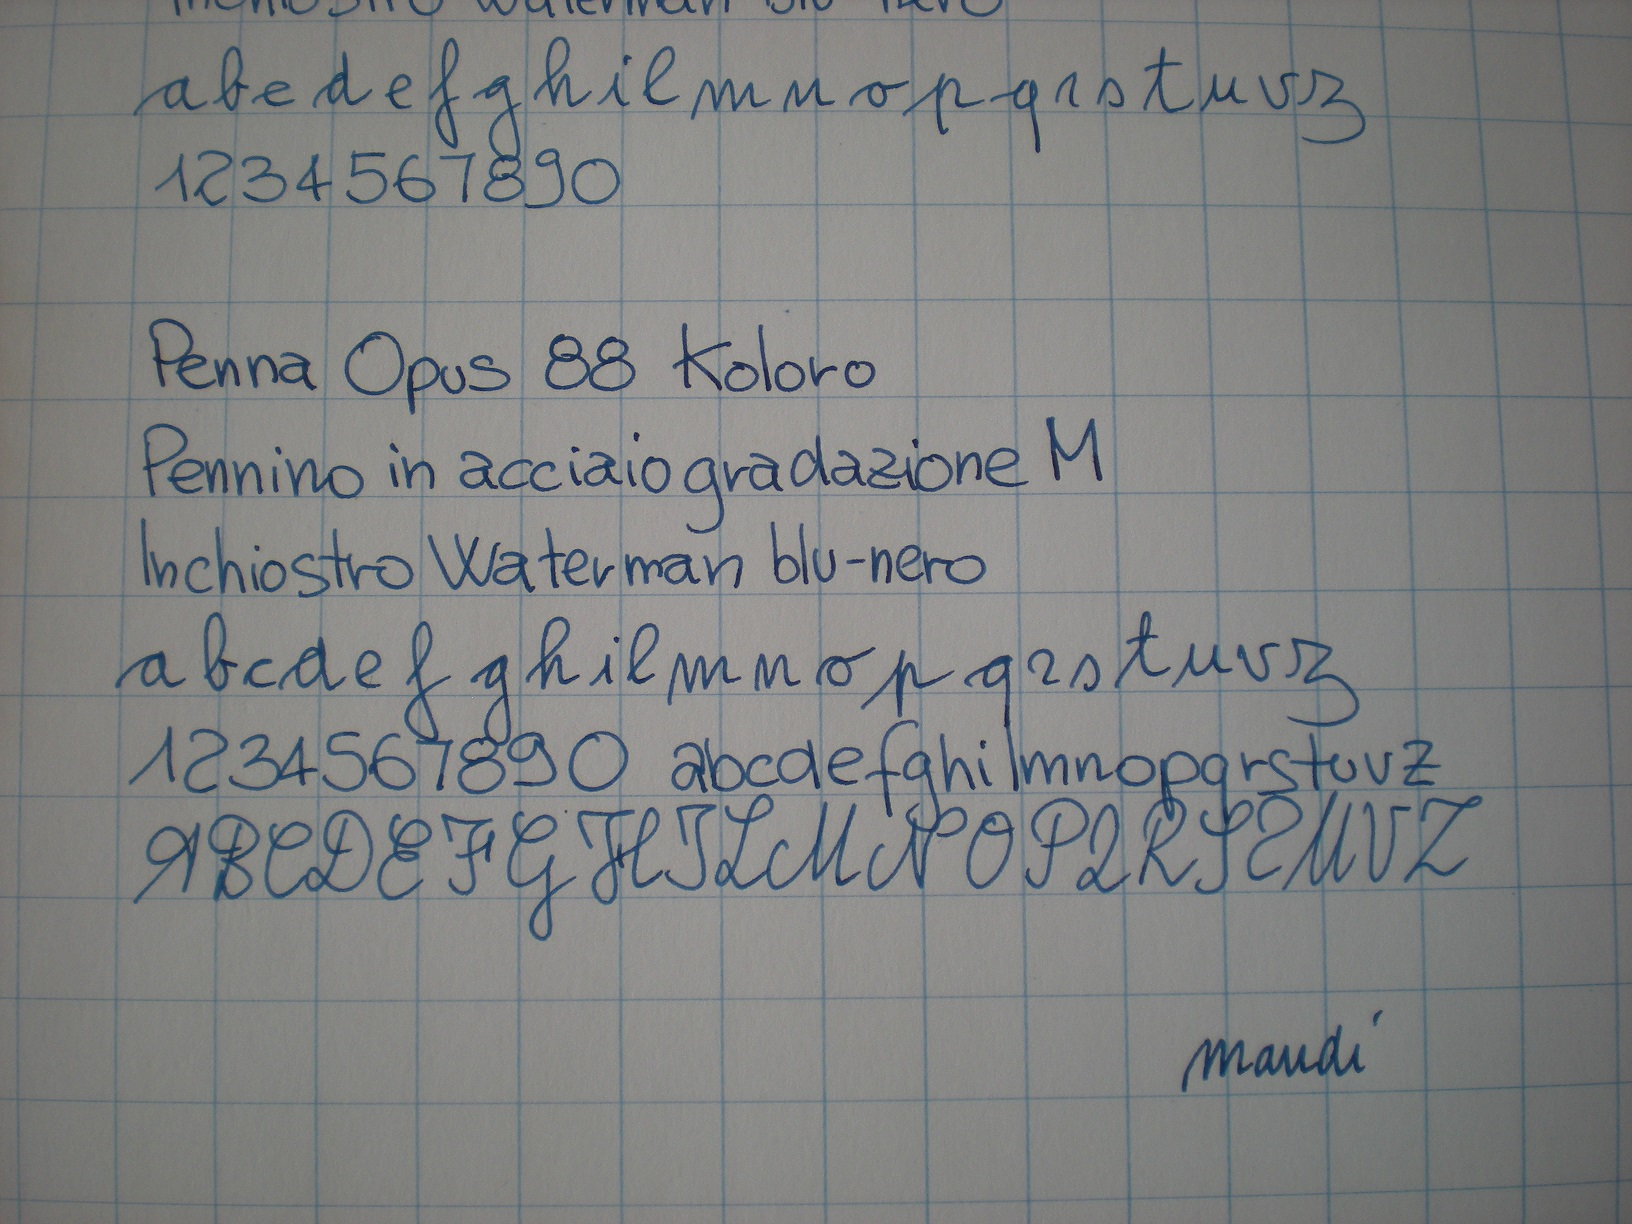 Inchiostro Waterman blu-nero
abcdefghilmnopqrstuvz
1234567890
Penna Opus 88 Koloro
Pennino in acciaio gradazione M
Inchiostro Waterman blu-nero
abcdefghilmnopqrstuvz
1234567890 abcdefghilmnopqrstuvz
ABCDEFGHILMNOPQRSTUVZ
mandi